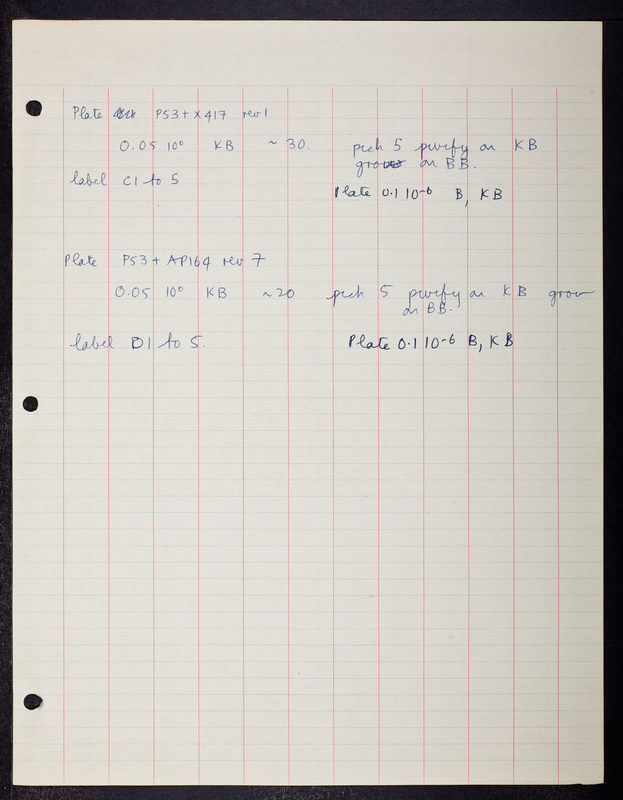 Plate P53 + X417 rev 1
0.05 10⁰ KB ~ 30. pick 5 purify on KB
grow on BB.
label C1 to 5
Plate 0.1 10⁻⁶ B, KB
Plate P53 + AP164 rev 7
0.05 10⁰ KB ~20 pick 5 purify on KB grow
on BB.
label D1 to 5. Plate 0.1 10⁻⁶ B, KB